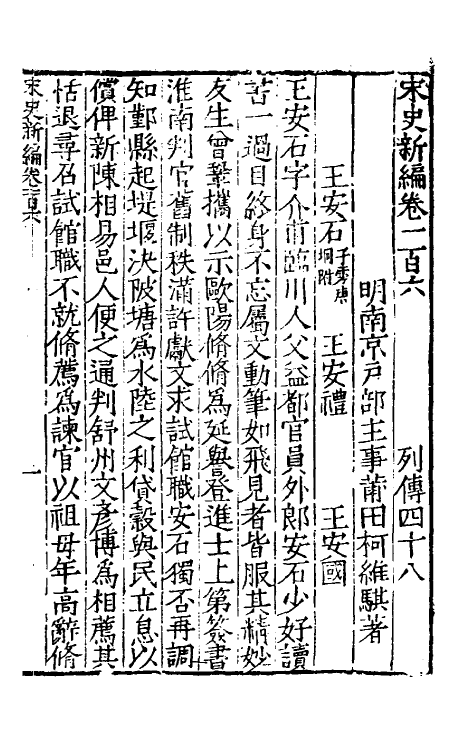 宋史新編卷一百六　列傳四十八
明南京戶部主事莆田柯維騏著
王安石子雱唐坰附　王安禮　王安國
王安石字介甫臨川人父益都官員外郎安石少好讀
書一過目終身不忘屬文動筆如飛見者皆服其精妙
友生曾鞏攜以示歐陽脩脩為延譽登進士上第簽書
淮南判官舊制秩滿許獻文求試館職安石獨否再調
知鄞縣起堤堰決陂塘為水陸之利貸穀與民立息以
償俾新陳相易邑人便之通判舒州文彥博為相薦其
恬退尋召試館職不就脩薦為諫官以祖母年高辭脩
宋史新編卷 一